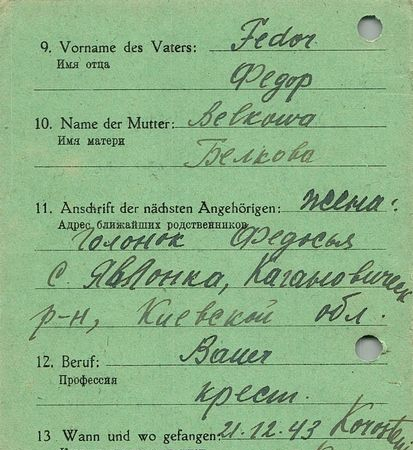 9. Vorname des Vaters: Fedor
Имя отца
Федор
10. Name der Mutter: Belkowa
Имя матери
Белкова
11. Anschrift der nächsten Angehörigen: жена:
Адрес ближайших родственников
Голонок Федосья
с. Яблонка, Кагановическ
р-н, Киевской обл.
12. Beruf: Bauer
Профессия
крест.
13 Wann und wo gefangen: 21.12.43